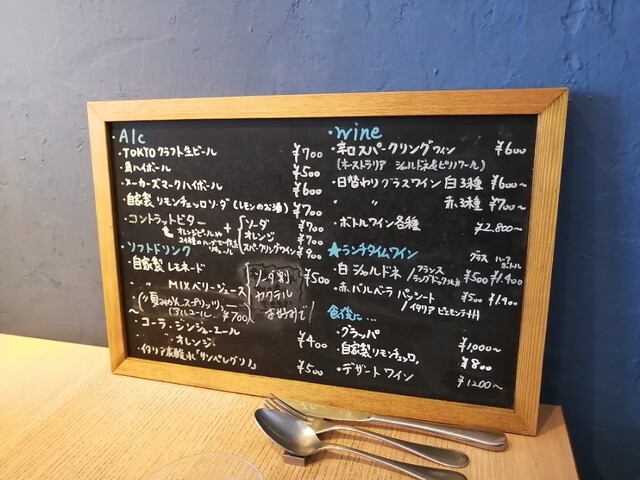 ・Alc
・TOKYOクラフト生ビール ¥700
・角ハイボール ¥500
・メーカーズマークハイボール ¥600
・自家製リモンチェッロソーダ(レモンのお酒) ¥700
・コントラットビター + ソーダ ¥700
オレンジ ¥700
スパークリングワイン ¥900
・ソフトドリンク
・自家製 レモネード ¥500
・〃 MIXベリージュース
ソーダ割
カクテル
お好きで!
(アルコール) ¥700
・コーラ・ジンジャーエール
・オレンジ ¥400
・イタリア炭酸水「サンペレグリノ」 ¥500
・wine
・辛口スパークリングワイン ¥600
(オーストラリア シャルドネ&ピノノワール)
・日替わりグラスワイン 白3種 ¥600〜
〃 赤3種 ¥700〜
・ボトルワイン各種 ¥2.800〜
★ランチタイムワイン グラス ハーフボトル
・白 シャルドネ / フランス ラングドック地方 ¥500 ¥1.400
・赤 バルベーラ パッシート / イタリア ピエモンテ州 ¥500 ¥1.400
食後に…
・グラッパ ¥1,000〜
・自家製リモンチェッロ, ¥800
・デザートワイン ¥1200〜